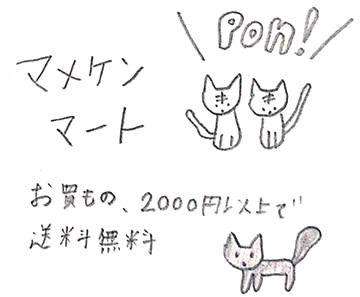 Pon!
マメケン
マート
お買もの、2000円以上で
送料無料